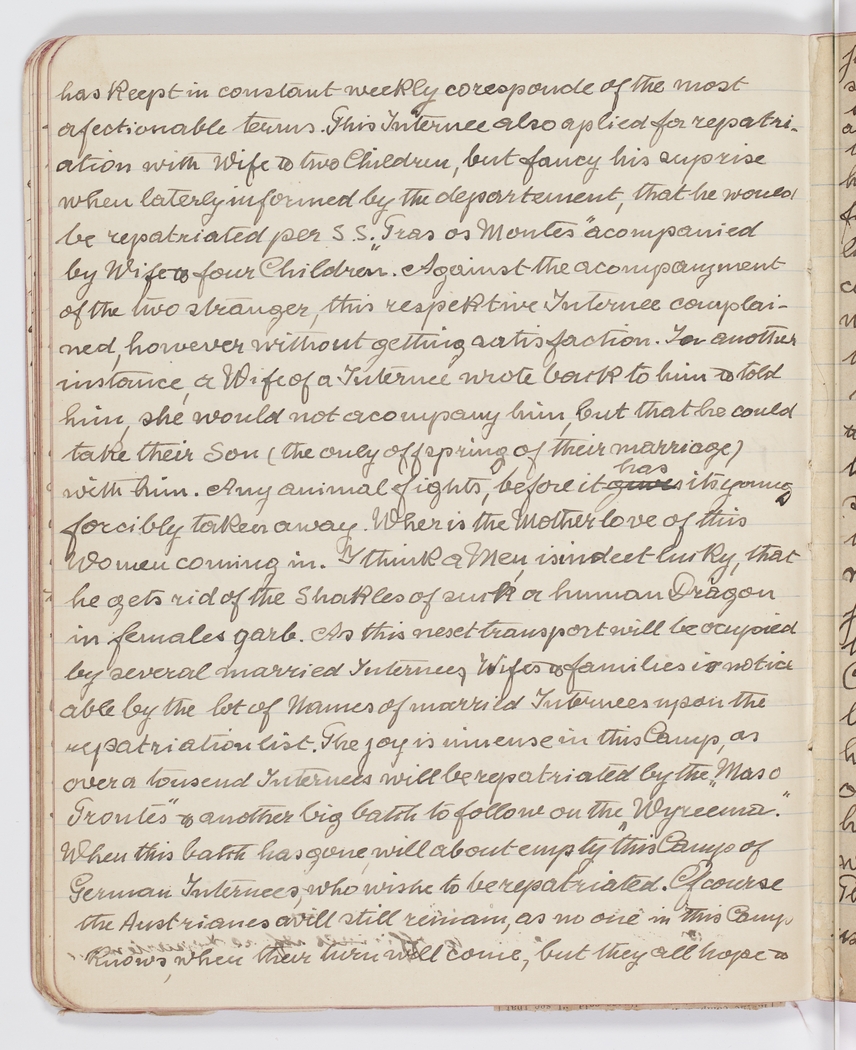 has kept in constant weekly coresponde of the most
afectionable terms. This Internee also aplied for repatri-
ation with Wife & two Children, but fancy his suprise
when laterly informed by the departement, that he would
be repatriated per S.S. "Tras os Montes" acompanied
by Wife & four Children. Against the acompanyment
of the two stranger, this respektive Internee complai-
ned, however without getting satisfaction. In another
instance, a Wife of a Internee wrote back to him & told
him, she would not acompany him, but that he could
take their Son (the only offspring of their marriage)
with him. Any animal fights, before it has its young
forcibly taken away. Wher is the Mother love of this
Women coming in. I think a Men, is indeet lucky, that
he gets rid of the Shakles of such a human Dragon
in females garb. As this next transport will be ocupied
by several married Internees, Wifes & families is notice
able by the lot of Names of married Internees upon the
repatriation list. The joy is imense in this Camp, as
over a tousend Internees will be repatriated by the "Maso
Trontes" & another big batch to follow on the "Wyreema."
When this batch has gone, will about empty this Camp of
German Internees, who wishe to be repatriated. Of course
the Austrianes will still remain, as no one in this Camp
knows, when their turn will come, but they all hope &